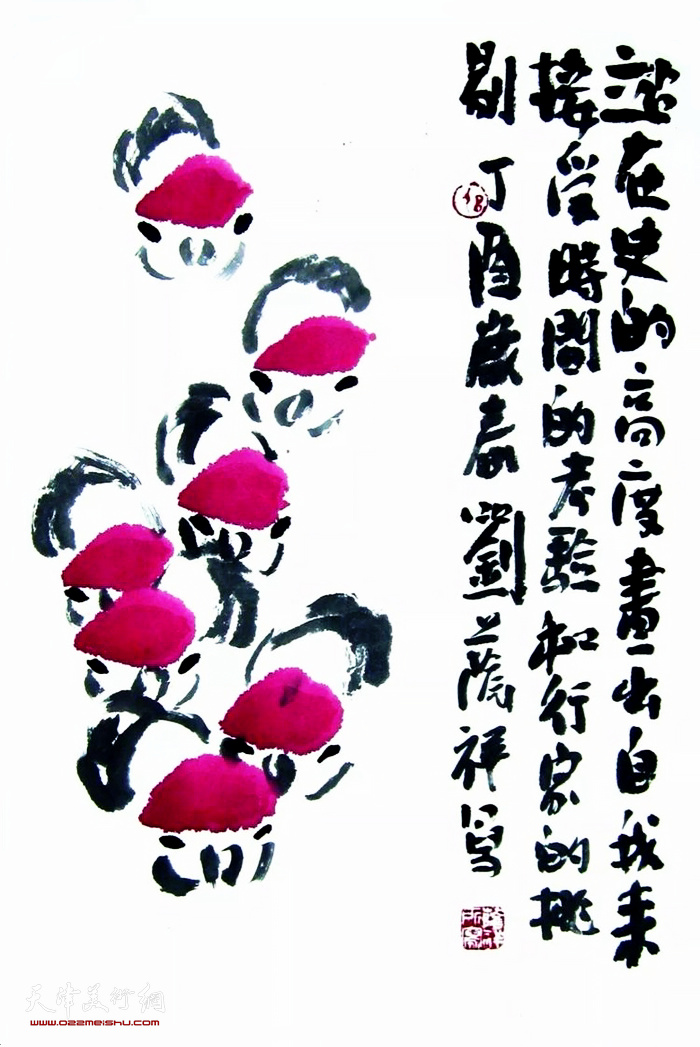 站在史的高度畫出自我来
接受時間的考驗和行家的挑
剔 丁酉歲春 劉蔭祥寫
天津美術網
www.022meishu.com